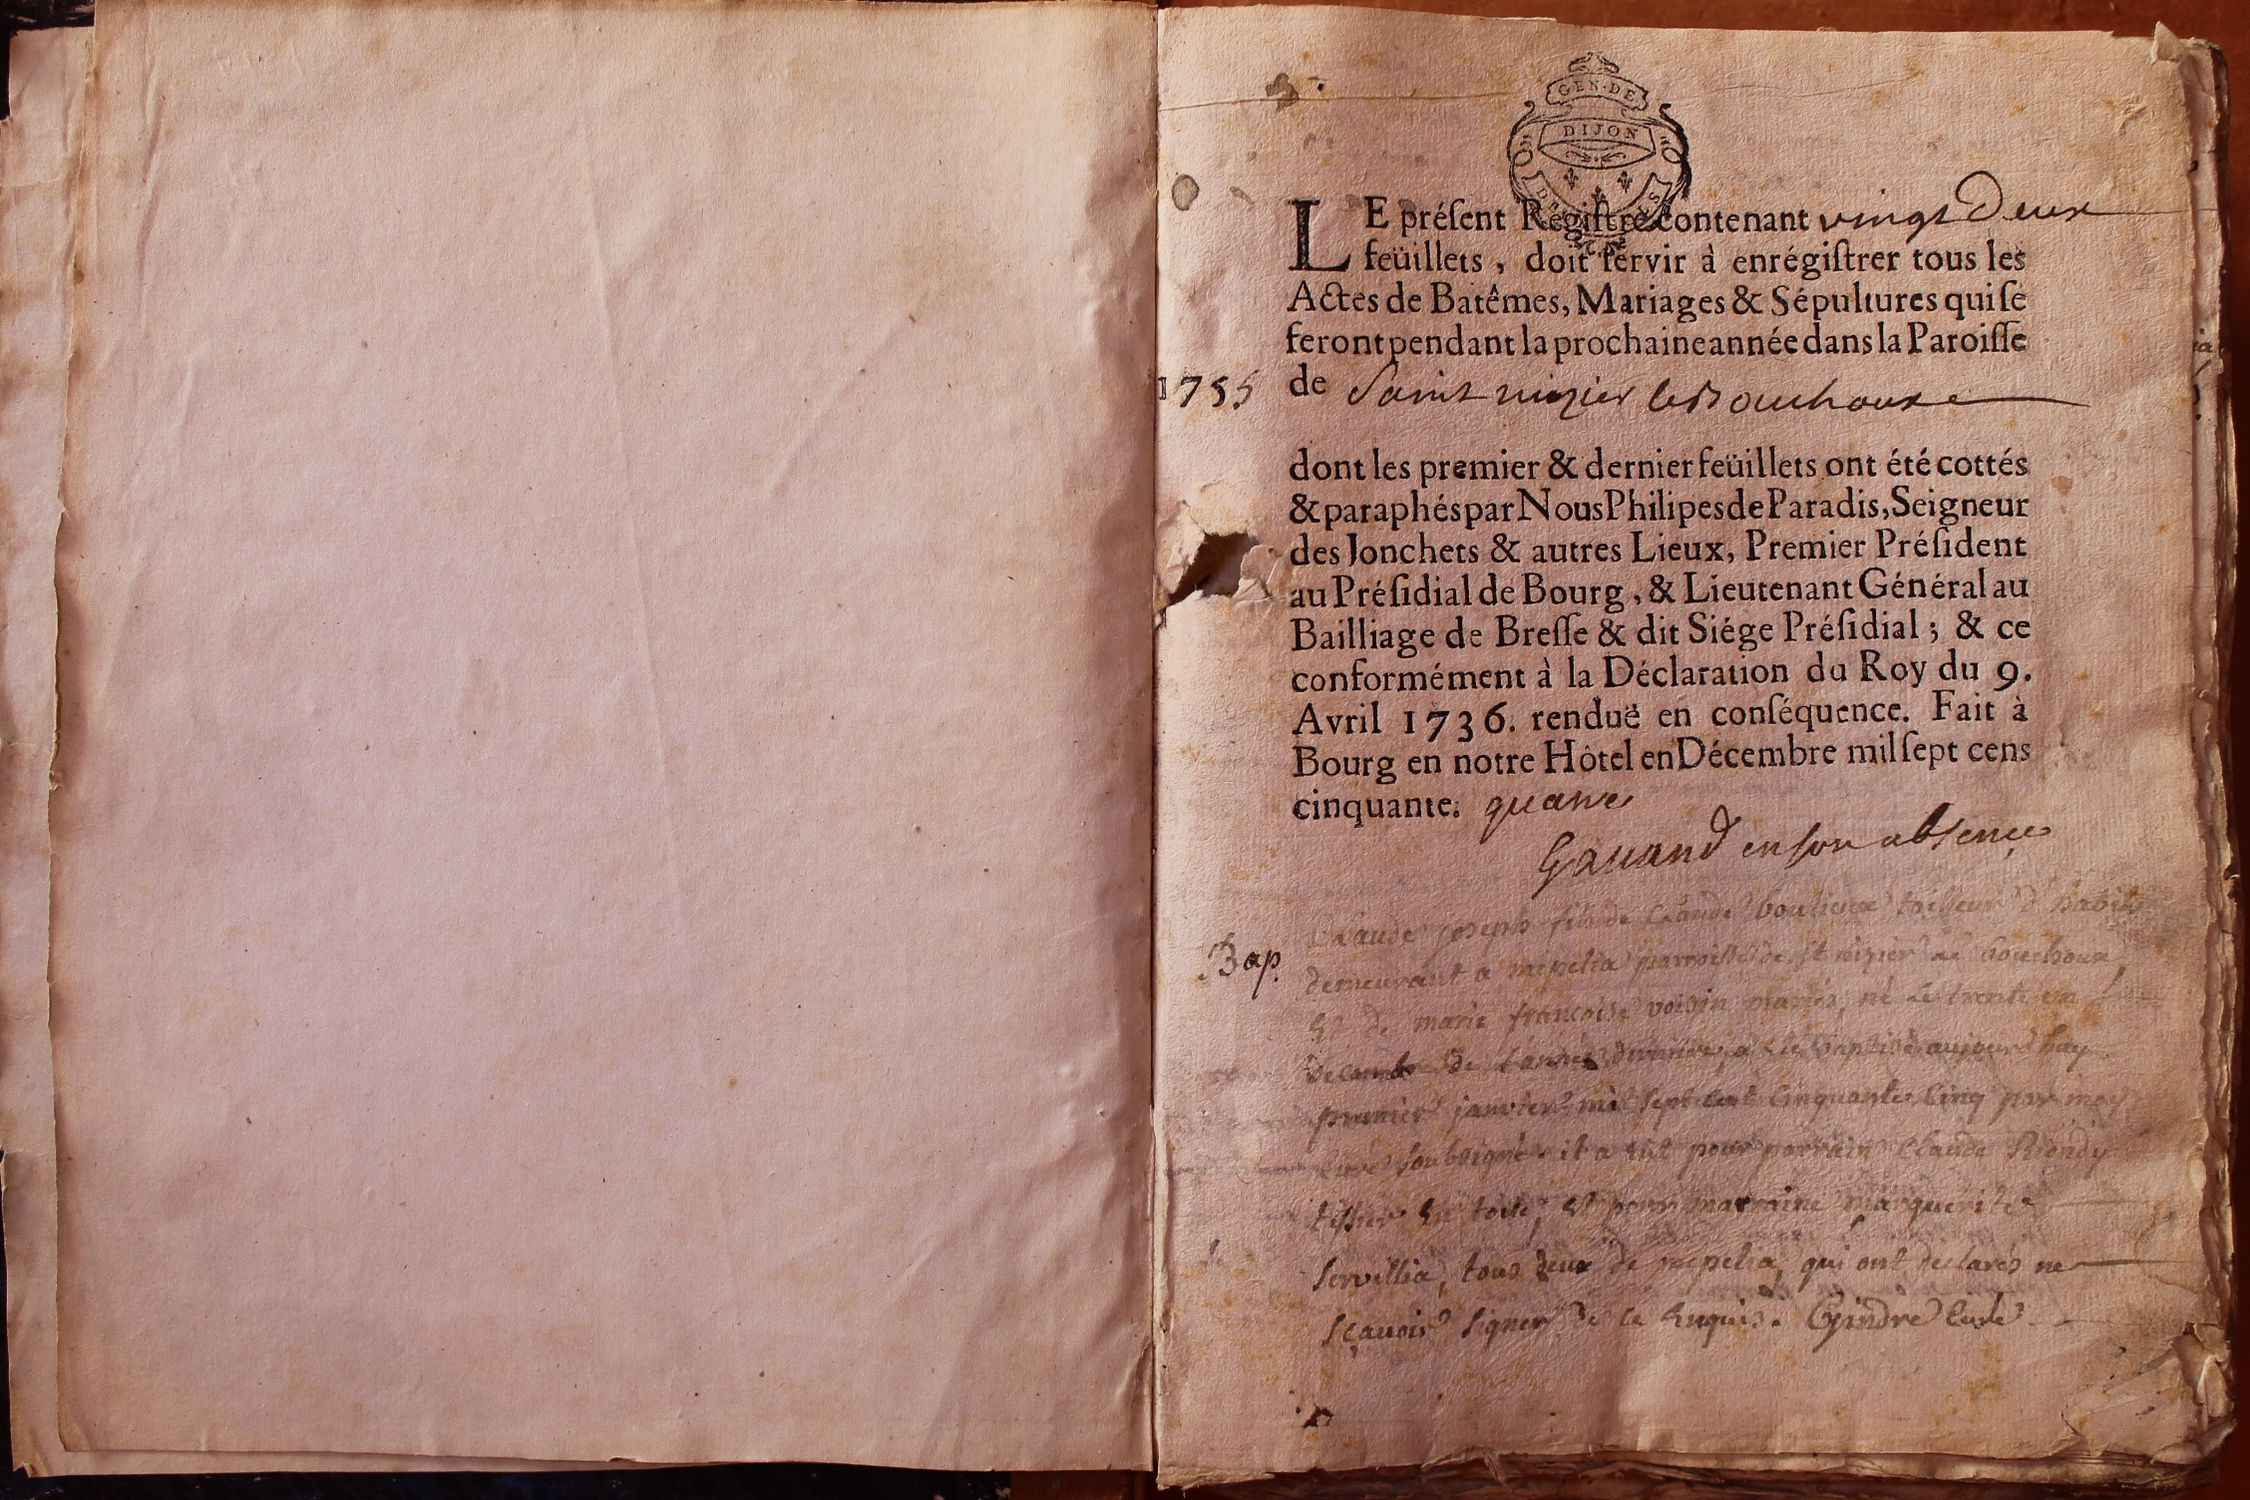 GEN·DE
DIJON
LE préſent Régiſtre contenant vingt Deux
feüillets, doit ſervir à enrégiſtrer tous les
Actes de Batêmes, Mariages & Sépultures qui ſe
feront pendant la prochaine année dans la Paroiſſe
1755 de Saint nizier le Bouchoux
dont les premier & dernier feüillets ont été cottés
& paraphés par Nous Philipes de Paradis, Seigneur
des Jonchets & autres Lieux, Premier Préſident
au Préſidial de Bourg, & Lieutenant Général au
Bailliage de Breſſe & dit Siége Préſidial ; & ce
conformément à la Déclaration du Roy du 9.
Avril 1736. renduë en conſéquence. Fait à
Bourg en notre Hôtel en Décembre mil ſept cens
cinquante. quatre
Gauand en son absence
Claude joseph fils de Claude boulieux tailleur d habits
Bap. demeurant a mépelia parroisse de st nizier le Bouchoux
et de marie francoise voisin mariés, né le trente un
decembre de l'année derniere, a été baptisé aujourd huy
premier janvier mil sept cent cinquante cinq par moy
Curé soubsigné. il a eut pour parrain Claude Riondy
tissier en toile, et pour marraine marguerite
servillia, tous deux de mepelia, qui ont declarés ne
sçavoir signer de ce enquis. Gindre Curé